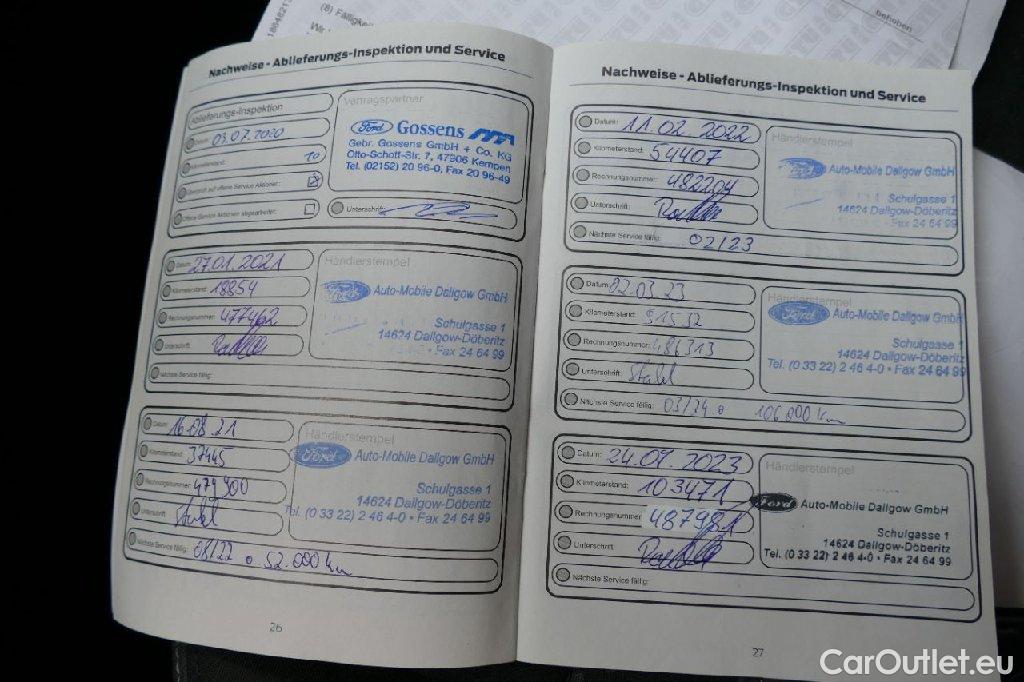 18648213
(8) Fälligkei
Wi
beheben
Nachweise - Ablieferungs-Inspektion und Service
Ablieferungs-Inspektion
Datum: 03.07.2020
Kilometerstand: 10
Geprüft auf offene Service Aktionen:
Offene Service Aktionen abgearbeitet:
Vertragspartner
Ford Gossens
Gebr. Gossens GmbH + Co. KG
Otto-Schott-Str. 7, 47906 Kempen
Tel. (02152) 20 96-0, Fax 20 96-49
Unterschrift:
Datum: 27.01.2021
Kilometerstand: 18854
Rechnungsnummer: 477462
Unterschrift:
Nächste Service fällig:
Händlerstempel
Ford Auto-Mobile Dallgow GmbH
Schulgasse 1
14624 Dallgow-Döberitz
Fax 24 64 99
Datum: 16.08.21
Kilometerstand: 37445
Rechnungsnummer: 479900
Unterschrift:
Nächste Service fällig: 08/22 o 52.000 km
Händlerstempel
Ford Auto-Mobile Dallgow GmbH
Schulgasse 1
14624 Dallgow-Döberitz
Tel. (0 33 22) 2 46 4-0 • Fax 24 64 99
26
Nachweise - Ablieferungs-Inspektion und Service
Datum: 11.02.2022
Kilometerstand: 54407
Rechnungsnummer: 482204
Unterschrift:
Nächste Service fällig: 02/23
Händlerstempel
Ford Auto-Mobile Dallgow GmbH
Schulgasse 1
14624 Dallgow-Döberitz
Fax 24 64 99
Datum: 02.03 23
Kilometerstand: 81532
Rechnungsnummer: 486313
Unterschrift:
Nächste Service fällig: 03/24 o 106.000 km
Händlerstempel
Ford Auto-Mobile Dallgow GmbH
Schulgasse 1
14624 Dallgow-Döberitz
Tel. (0 33 22) 2 46 4-0 • Fax 24 64 99
Datum: 24.09.2023
Kilometerstand: 103471
Rechnungsnummer: 487981
Unterschrift:
Nächste Service fällig:
Händlerstempel
Ford Auto-Mobile Dallgow GmbH
Schulgasse 1
14624 Dallgow-Döberitz
Tel. (0 33 22) 2 46 4-0 • Fax 24 64 99
27
CarOutlet.eu